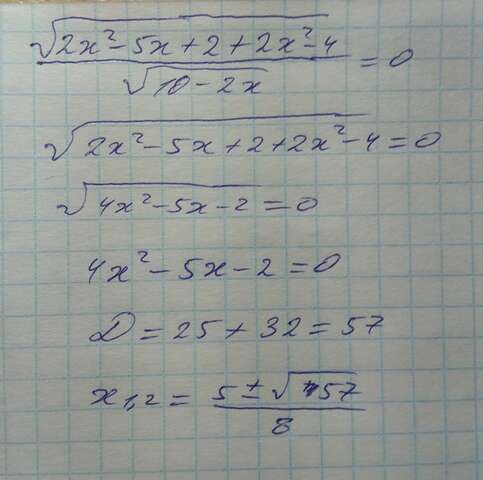 √(2x² - 5x + 2 + 2x² - 4) / √(10 - 2x) = 0
√(2x² - 5x + 2 + 2x² - 4) = 0
√(4x² - 5x - 2) = 0
4x² - 5x - 2 = 0
D = 25 + 32 = 57
x₁,₂ = (5 ± √57) / 8